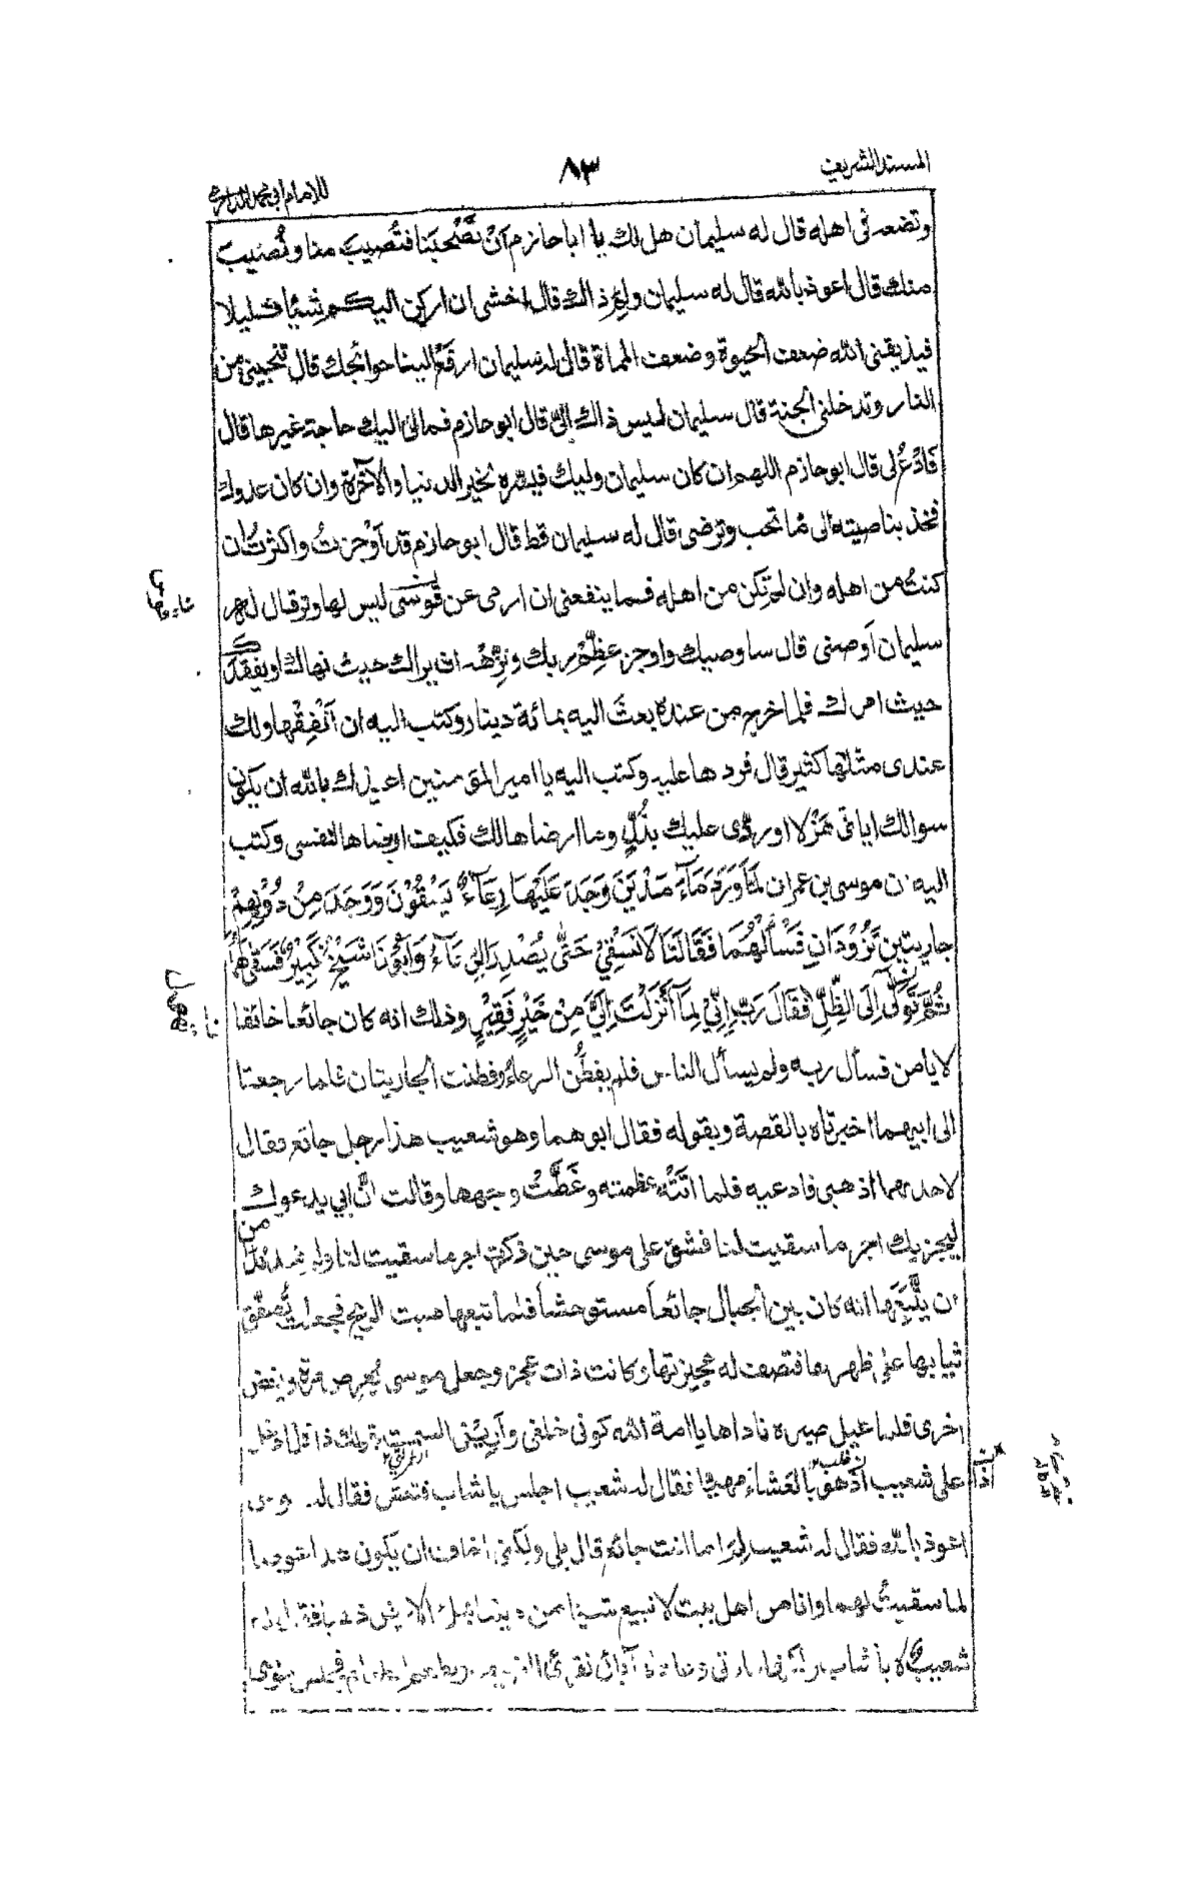 المسند الشريف
٨٣
للامام ابي محمد الدارمي
وتضعه فى اهله قال له سليمان هل لك يا ابا حازم اَنْ تَصْحَبَنا فتُصِيبَ منا ونُصِيبَ
منك قال اعوذ بالله قال له سليمان ولِمَ ذاك قال اخشى ان اركن اليكم شيئا قليلا
فيذيقنى الله ضعف الحيوة وضعف المماة قال له سليمان ارفَعْ الينا حوائجك قال تنجينى من
النار وتدخلنى الجنة قال سليمان ليس ذاك اِلَىَّ قال ابو حازم فمالى اليك حاجة غيرها قال
فَادْعُ لى قال ابو حازم اللهم ان كان سليمان وليك فيسّره لخير الدنيا والآخرة وان كان عدوك
فخذ بناصيته الى ما تحب وترضى قال له سليمان قط قال ابو حازم قد اَوْجَزتُ واكثرتُ ان
كنتَ من اهله وان لم تكن من اهله فما ينفعنى ان ارمى عن قوس ليس لها وتر قال له
سليمان اَوصنى قال ساوصيك واوجز عظِّمْ ربك ونزِّهْه ان يراك حيث نهاك او يفقدك
حيث امرك فلما خرج من عنده بعث اليه بمائة دينار وكتب اليه ان اَنْفِقْها ولك
عندى مثلها كثير قال فردها عليه وكتب اليه يا امير المؤمنين اعيذك بالله ان يكون
سوالك اياى هَزْلا او ردّى عليك بذْلًا وما ارضاها لك فكيف ارضاها لنفسى وكتب
اليه ان موسى بن عمران لَمَّا وَرَدَ مَآءَ مَدْيَنَ وَجَدَ عَلَيْهَا رِعَآءً يَسْقُوْنَ وَوَجَدَ مِنْ دُوْنِهِمْ
جاريتين تَزُوْدَانِ فَسْأَلَهُمَا فَقَالَتَا لَا نَسْقِيْ حَتّٰى يُصْدِرَ الرِّعَآءُ وَاَبُوْنَا شَيْخٌ كَبِيْرٌ فَسَقٰى لَهُمَا
ثُمَّ تَوَلّٰى اِلَى الظِّلِّ فَقَالَ رَبِّ اِنِّيْ لِمَآ اَنْزَلْتَ اِلَيَّ مِنْ خَيْرٍ فَقِيْرٌ وذلك انه كان جائعا خائفا
لا يامن فسأل ربه ولم يسأل الناس فلم يفطُن الرعاءُ وفطنت الجاريتان فلما رجعتا
الى ابيهما اخبرتاه بالقصة وبقوله فقال ابوهما وهو شعيب هذا رجل جائع فقال
لاحدىهما اذهبى فادعيه فلما اتَتْه عظمته وغَطَّتْ وجهها وقالت اِنَّ ابي يدعوك
ليجزيك اجر ما سقيت لنا فشق على موسى حين ذكرت اجر ما سقيت لنا ولم يجد بُدًّا من
ان يتْبَعَها انه كان بين الجبال جائعاً مستوحشاً فلما تبعها هبت الريح فجعلت تُصفّق
ثيابها على ظهرها فتصف له عجيزتها وكانت ذات عجز وجعل موسى يُعرِض مرة ويغض
اخرى فلما عيل صبره ناداها يا امة الله كونى خلفى وأَرِيْنى السمت بقولك ذا فلما دخل
على شعيب اذ هو بالعَشاء مهيأ فقال له شعيب اجلس يا شاب فتعش فقال له موسى
اعوذ بالله فقال له شعيب لِمَ اما انت جائع قال بلى ولكنى اخاف ان يكون هذا عوضا
لما سقيتُ لهما وانا من اهل بيت لا نبيع شيئا من ديننا بملء الارض ذهبا فقال له
شعيب لا يا شاب ولكنها عادتى وعادة آبائى نقرى الضيف ونطعم الطعام فجلس موسى